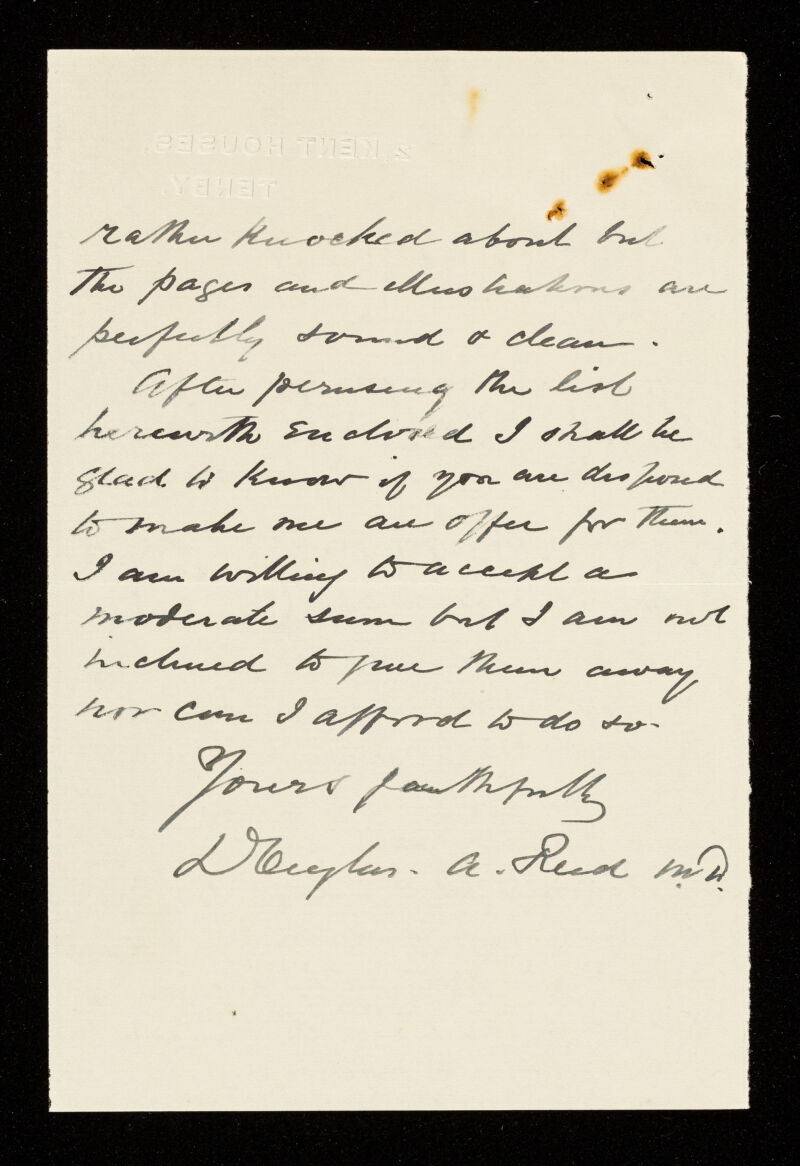 2, KENT HOUSES,
TENBY.
rather knocked about but
the pages and illustrations are
perfectly sound & clean.
After perusing the list
herewith enclosed I shall be
glad to know if you are disposed
to make me an offer for them.
I am willing to accept a
moderate sum but I am not
inclined to give them away
nor can I afford to do so.
Yours faithfully
Douglas. A. Reid M.D.